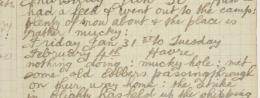 had a feed & went out to the camp:
plenty of snow about & the place is
rather mucky:
Friday Jan 31st to Tuesday
February 4th Havre
nothing doing: mucky hole: met
some old cobbers passing through
on their way home: the strike
in Blighty has held up the shipping